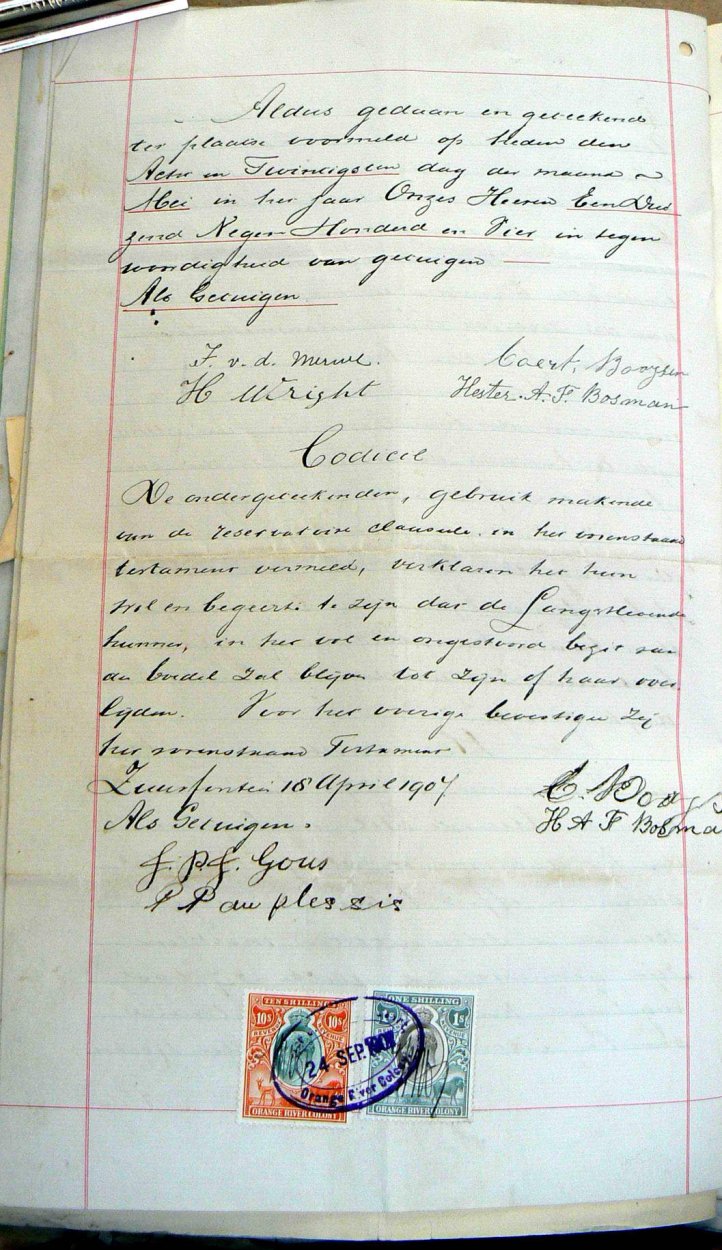 Aldus gedaan en geteekend
ter plaatse voormeld op heden den
Acht en Twintigsten dag der maand
Mei in het Jaar Onzes Heeren Een Dui
zend Negen Honderd en Vier in tegen
woordigheid van getuigen
Als Getuigen
F. v. d. Merwe. Coert. Booysen
H Wright Hester. A. F. Bosman
Codicil
De ondergeteekenden, gebruik makende
van de reservatoire clausule in het vorenstaand
testament vermeld, verklaren het hun
wil en begeerte te zijn dat de Langstlevende
hunner, in het vol en ongestoord bezit van
den boedel zal blijven tot zijn of haar over
lijden. Voor het overige bevestigen zij
het vorenstaand Testament
Zuurfontein 18 April 1907 C. Booys
Als Getuigen. H A F Bosma
J. P. J. Gous
P du plessis
TEN SHILLINGS ONE SHILLING
10s 10s 1s
REVENUE REVENUE
24 SEP
Orange River Colony
ORANGE RIVER COLONY ORANGE RIVER COLONY